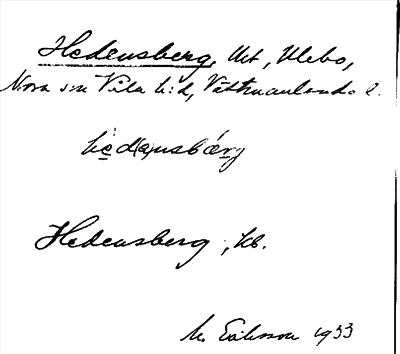 Hedensberg, Urt, Ulebo,
Nora sn Vila h:d, Västmanlands l.
hèd(a)nsbærg
Hedensberg, kb.
M. Eriksson 1933